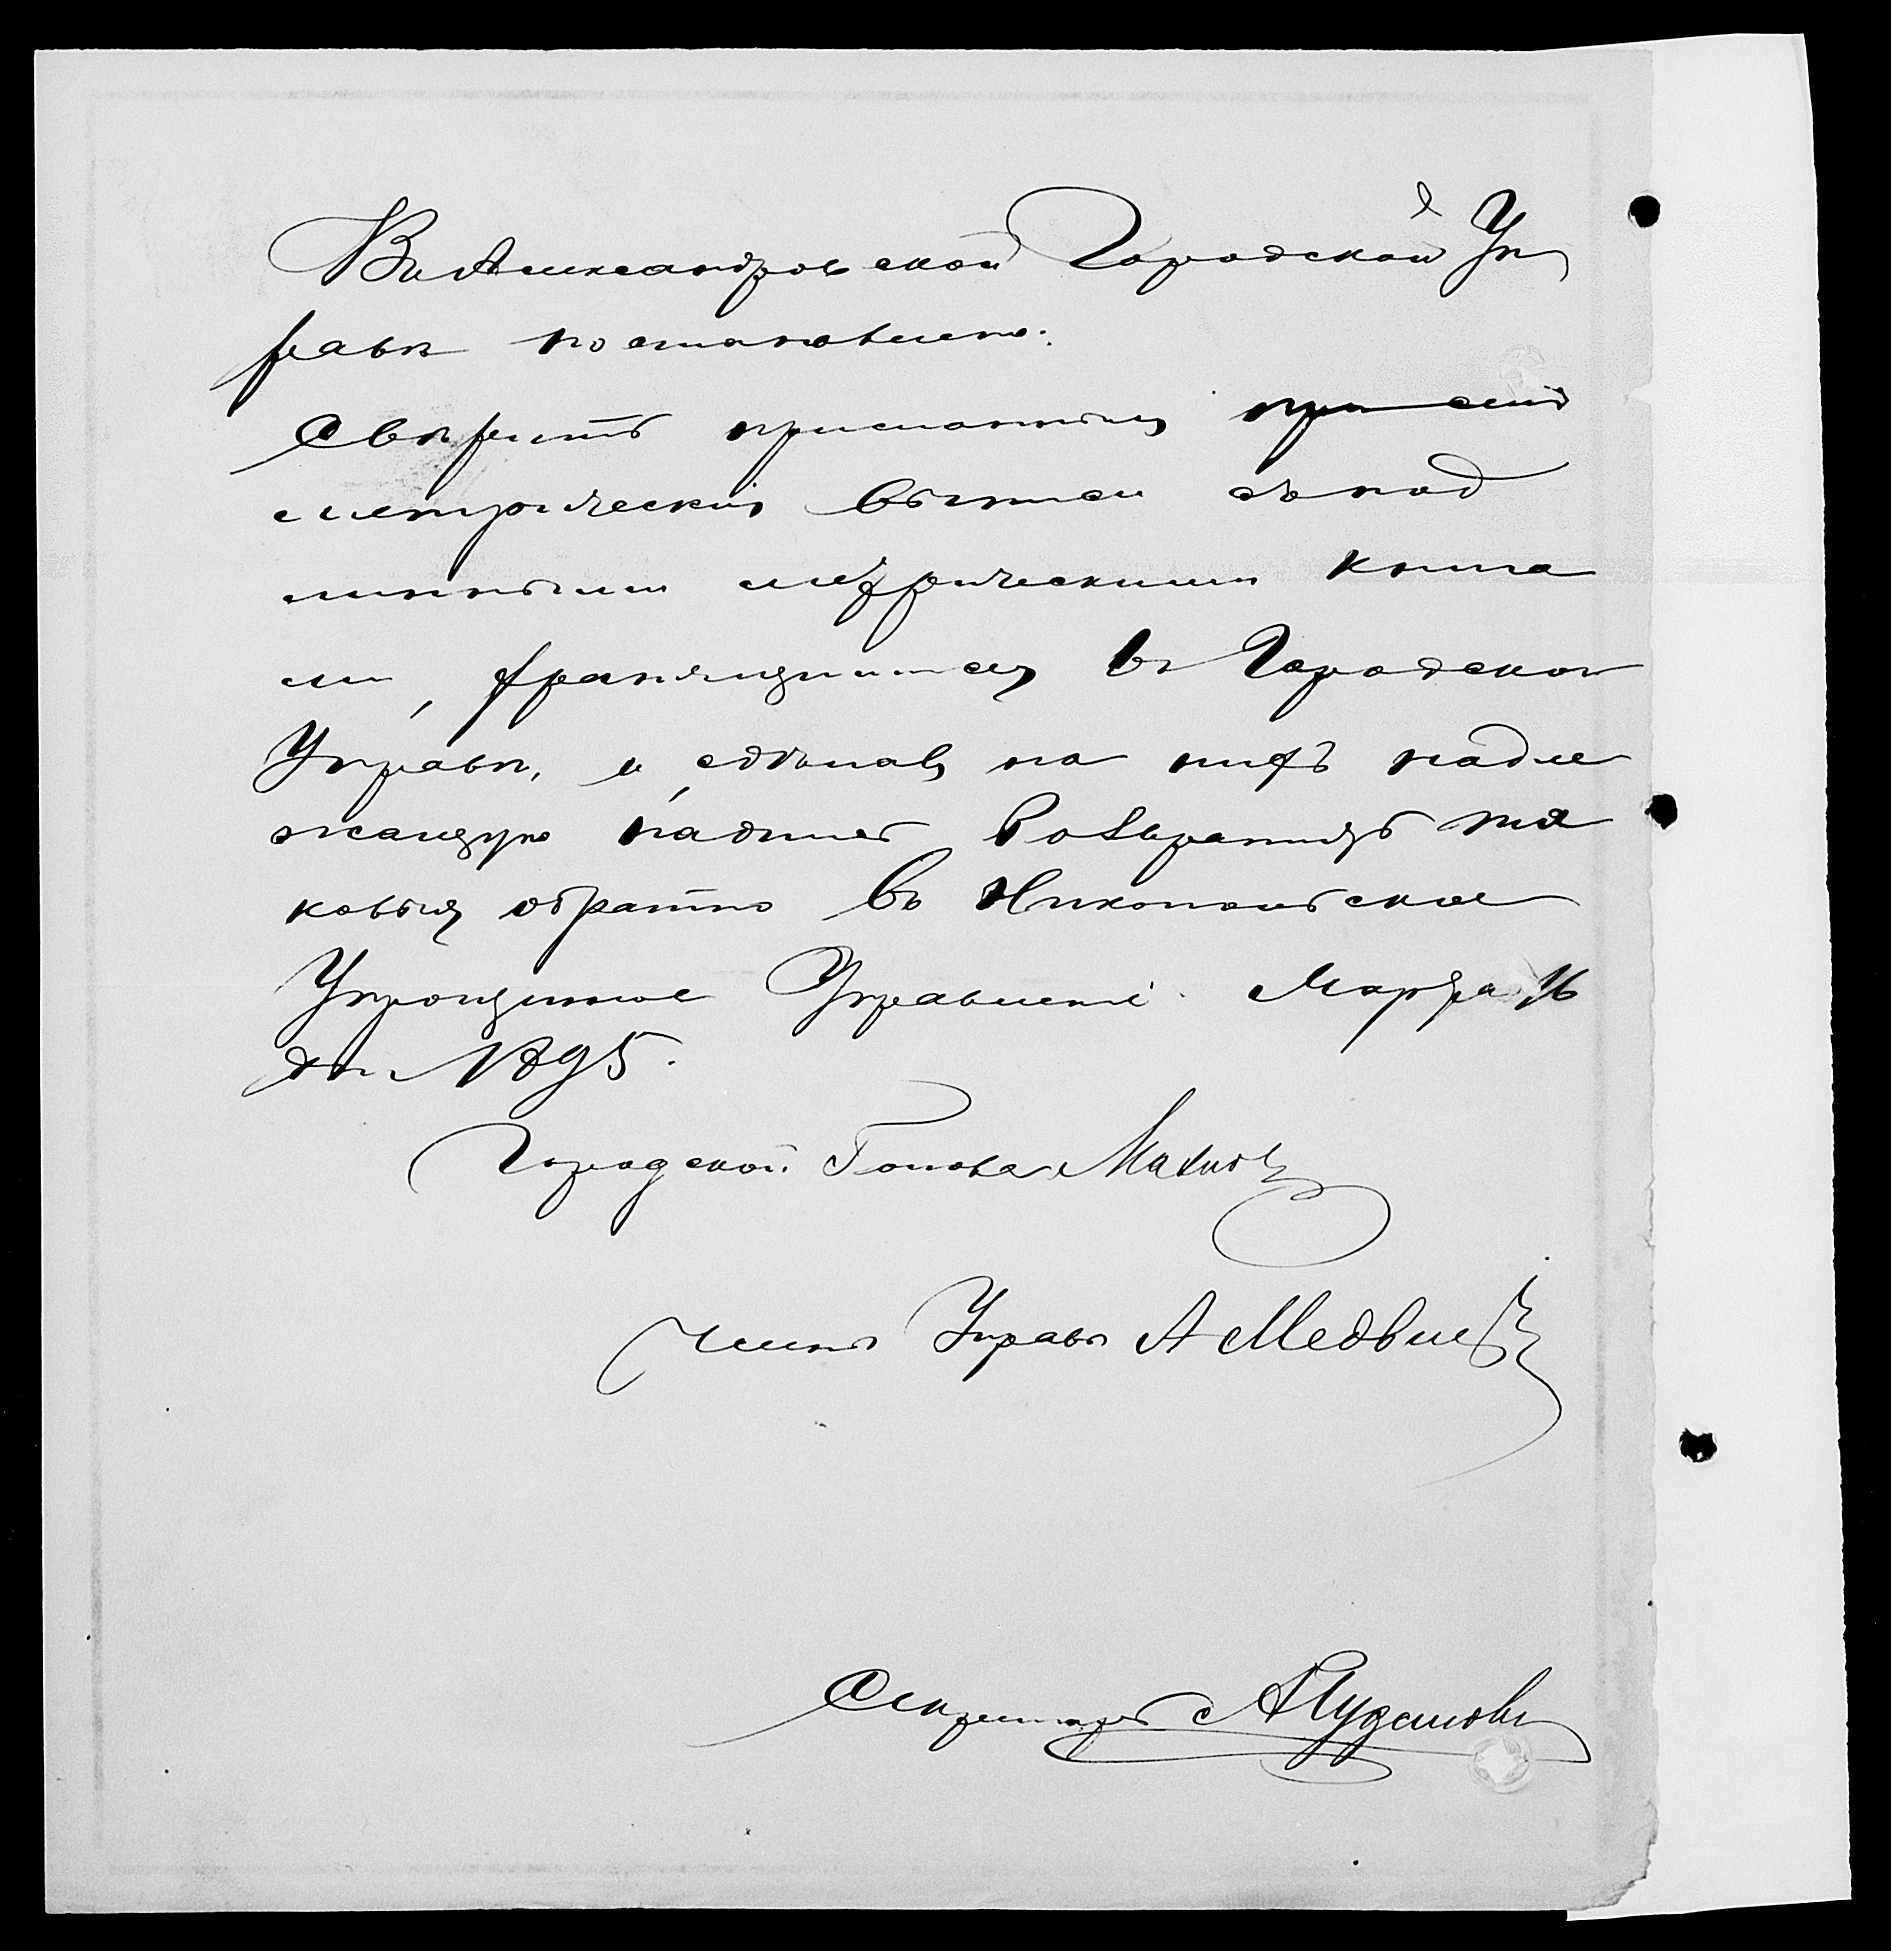 Въ Александровской Городской Уп
равѣ постановлено:
Свѣрить присланныя при семъ
метрическія выписи съ под
линными метрическими книга
ми, хранящимися въ Городской
Управѣ, и, сдѣлавъ на нихъ надле
жащую надпись возвратить та
ковыя обратно въ Никопольское
Упрощенное Управленіе. Марта 16
дня 1895.
Городской Голова Махно
Членъ Управы А Медвѣ
Секретарь А